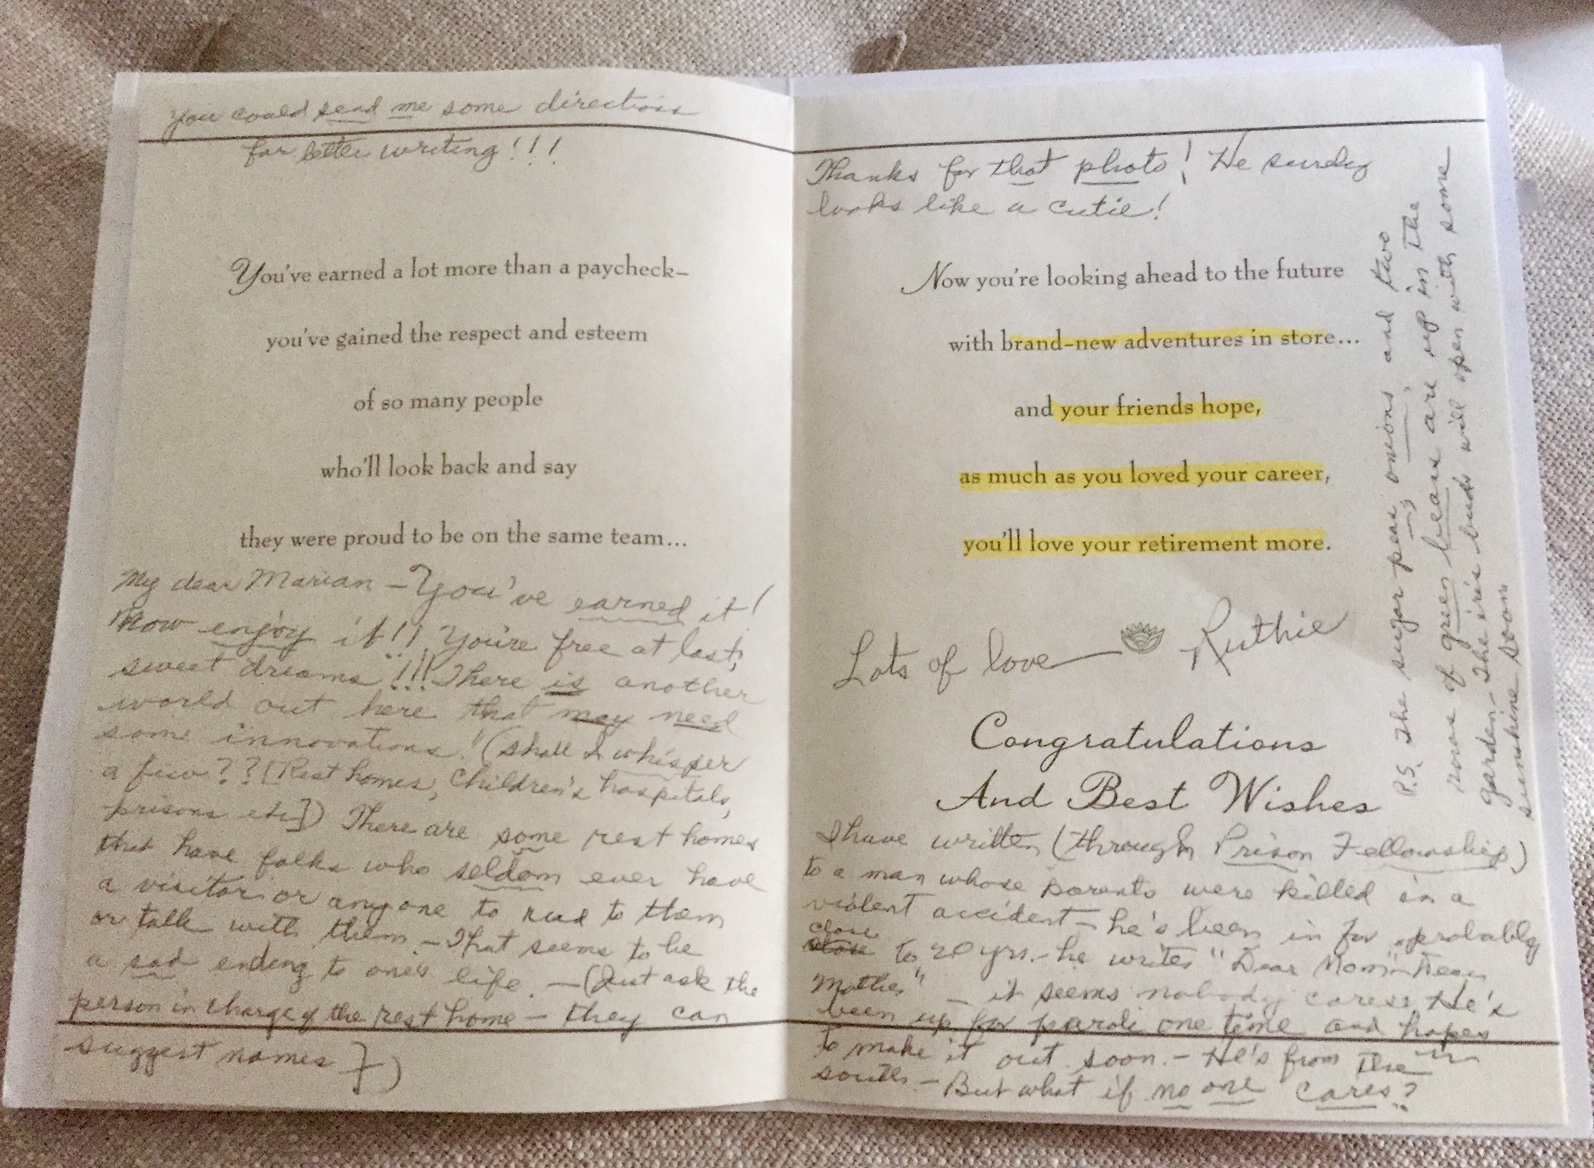 You could send me some directions
for letter writing!!!
You've earned a lot more than a paycheck–
you've gained the respect and esteem
of so many people
who'll look back and say
they were proud to be on the same team...
My dear Marian – You've earned it!
Now enjoy it!! You're free at last,
sweet dreams!!! There is another
world out here that may need
some innovations! (Shall I whisper
a few?? [Rest homes, Children's hospitals,
prisons etc]) There are some rest homes
that have folks who seldom ever have
a visitor or anyone to read to them
or talk with them – That seems to be
a sad ending to one's life. – (Just ask the
person in charge of the rest home – they can
suggest names })
Thanks for that photo! He surely
looks like a cutie!
Now you're looking ahead to the future
with brand-new adventures in store...
and your friends hope,
as much as you loved your career,
you'll love your retirement more.
Lots of love — Ruthie
Congratulations
And Best Wishes
I have written (through Prison Fellowship)
to a man whose parents were killed in a
violent accident – he's been in for probably
close
to 20 yrs. – he writes "Dear Mom" – "Dear
Mother" – it seems nobody cares. He's
been up for parole one time and hopes
to make it out soon. – He's from the
south – But what if no one cares?
P.S. The sugar peas, onions and two
rows of green beans are up in the
garden – The iris buds will open with some
sunshine soon